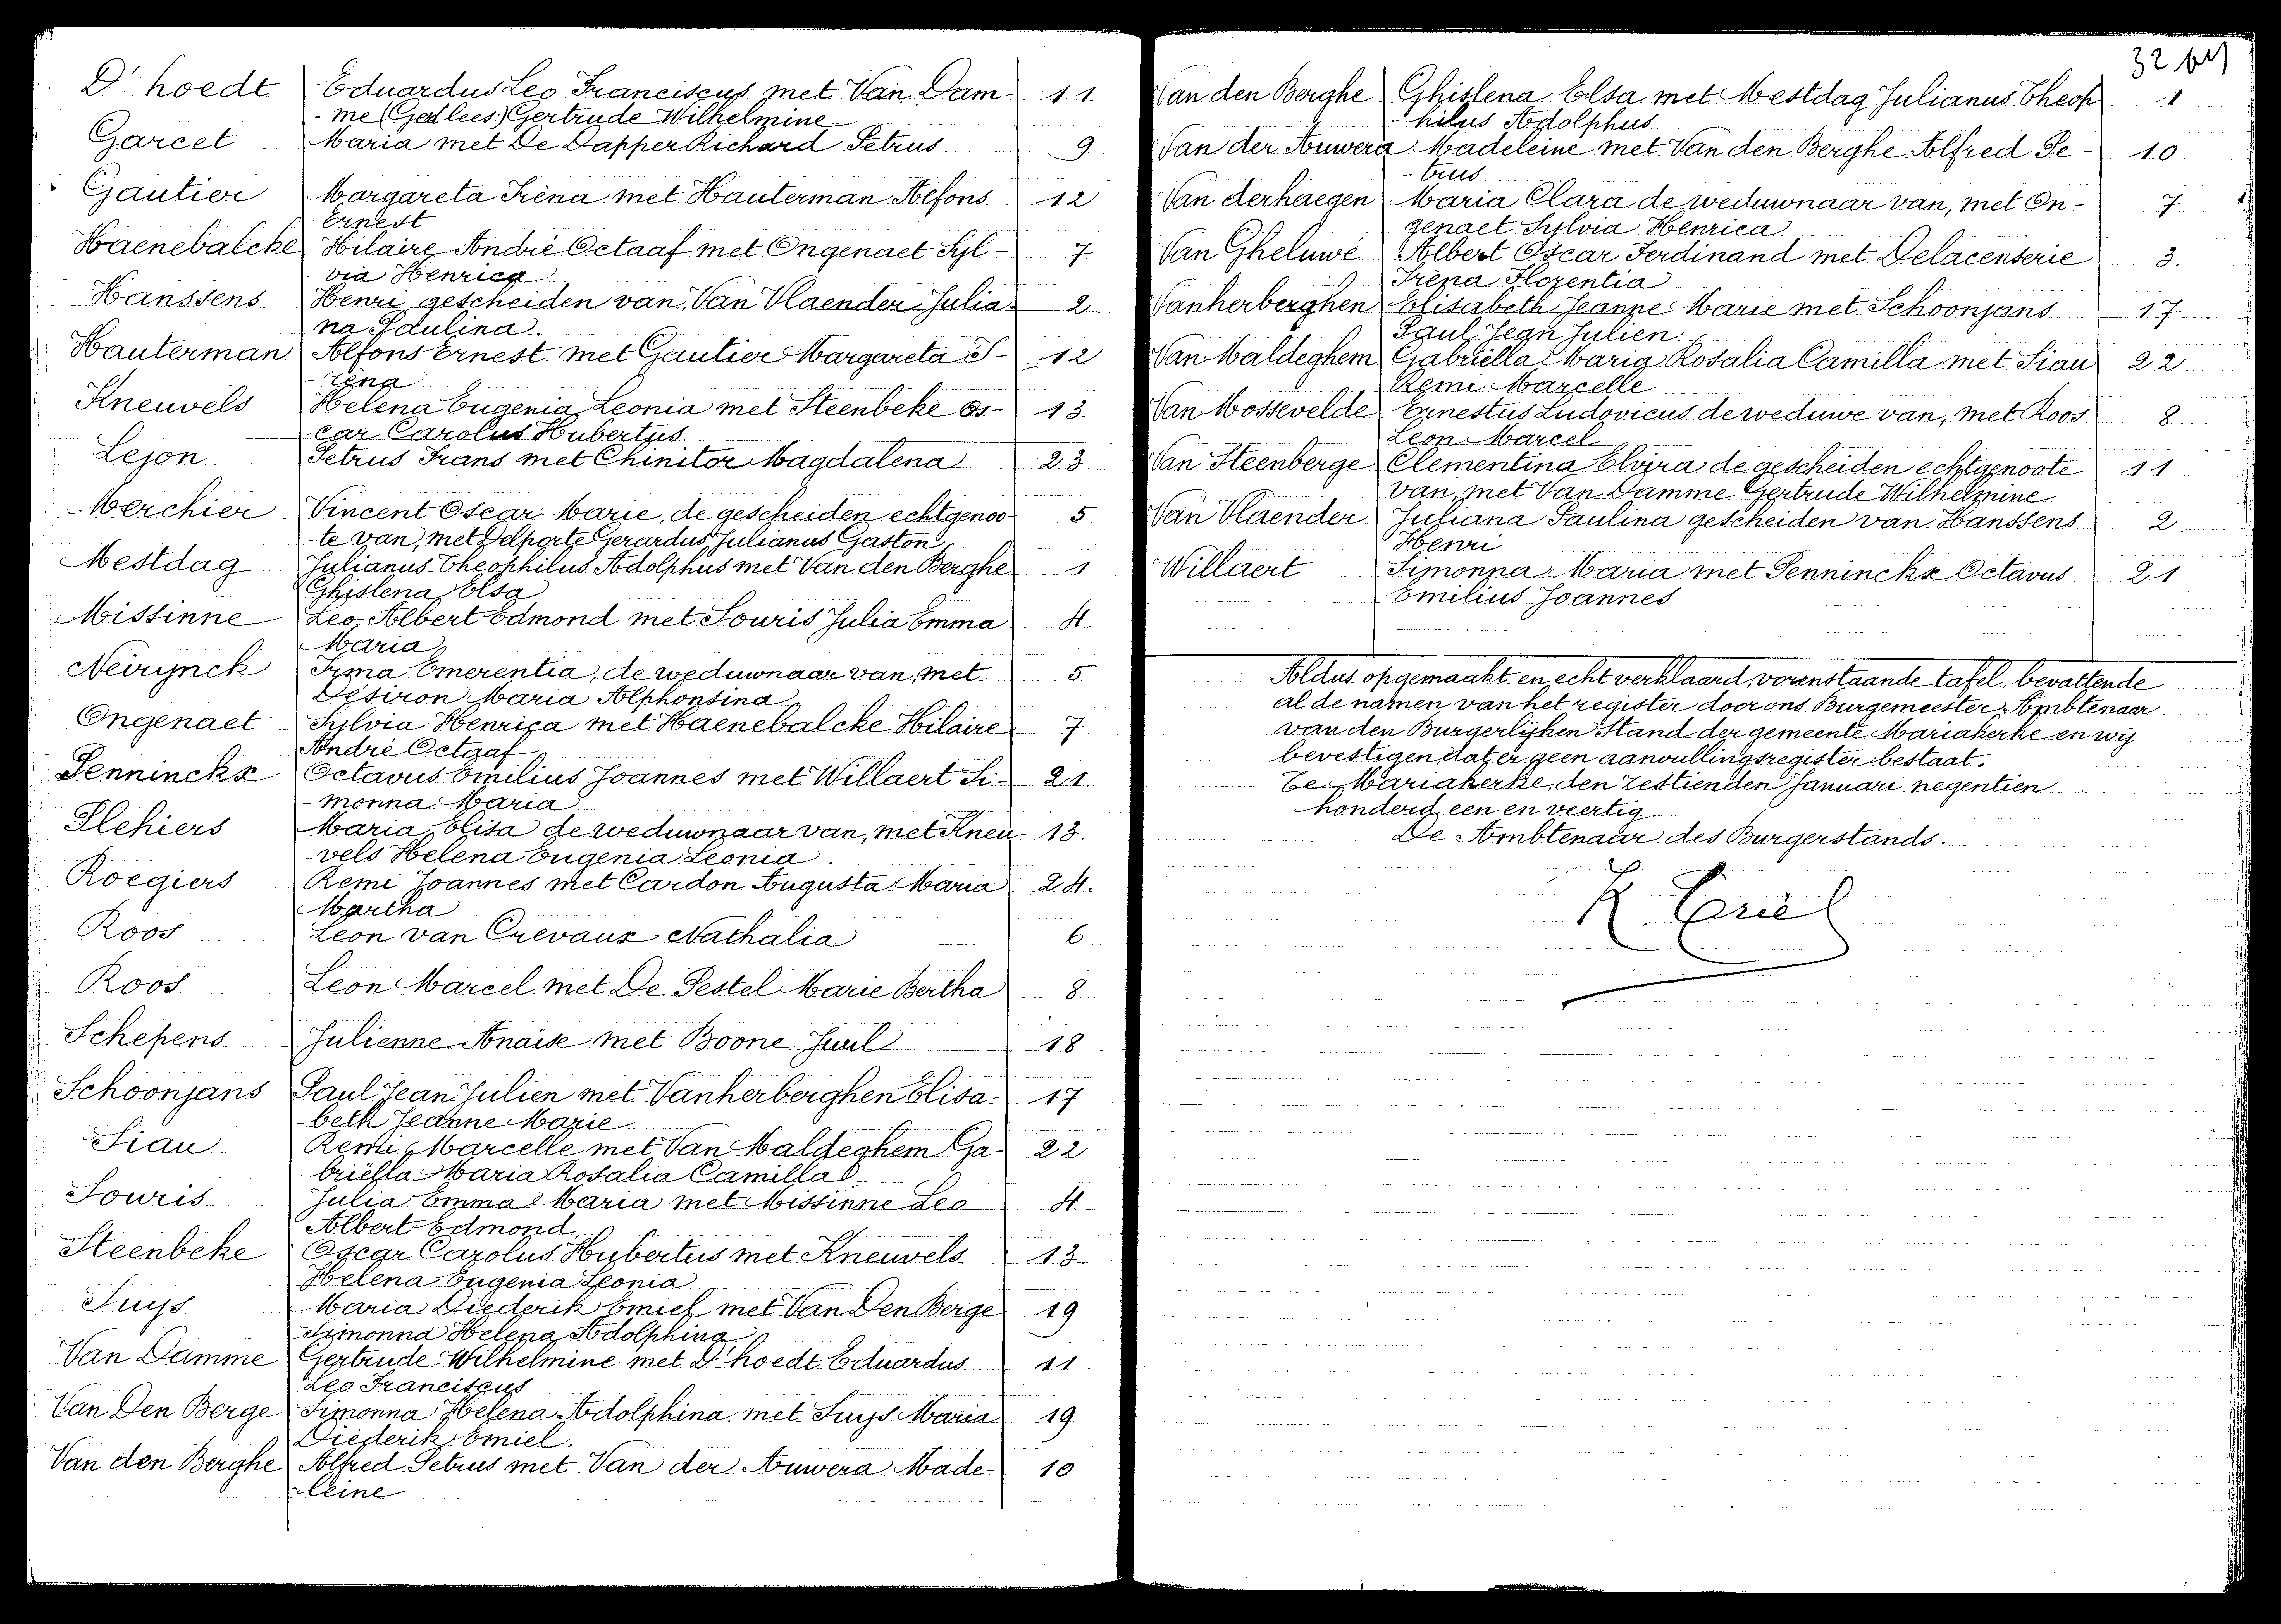 D'hoedt Eduardus Leo Franciscus met Van Dam- 11
-me (Ged lees:) Gertrude Wilhelmine
Garcet Maria met De Dapper Richard Petrus 9
Gautier Margareta Irèna met Hauterman Alfons 12
Ernest
Haenebalcke Hilaire André Octaaf met Ongenaet Syl- 7
-via Henrica
Hanssens Henri gescheiden van Van Vlaender Julia- 2.
na Paulina.
Hauterman Alfons Ernest met Gautier Margareta I- 12
-rèna
Kneuvels Helena Eugenia Leonia met Steenbeke Os- 13.
-car Carolus Hubertus
Lejon Petrus Frans met Chinitor Magdalena 23
Merchier Vincent Oscar Marie, de gescheiden echtgenoo- 5
te van, met Delporte Gerardus Julianus Gaston
Mestdag Julianus Theophilus Adolphus met Van den Berghe 1
Ghislena Elsa
Missinne Leo Albert Edmond met Souris Julia Emma 4.
Maria
Neirynck Irma Emerentia, de weduwnaar van, met 5
Désiron Maria Alphonsina
Ongenaet Sylvia Henrica met Haenebalcke Hilaire 7
André Octaaf
Pennincks Octavus Emilius Joannes met Willaert Si- 21.
-monna Maria
Plehiers Maria Elisa de weduwnaar van, met Kneu- 13.
-vels Helena Eugenia Leonia.
Roegiers Remi Joannes met Cardon Augusta Maria 24.
Martha
Roos Leon van Crevaux Nathalia 6
Roos Leon Marcel met De Pestel Marie Bertha 8
Schepens Julienne Anaïse met Boone Juul 18
Schoonjans Paul Jean Julien met Vanherberghen Elisa- 17
beth Jeanne Marie
Siau Remi Marcelle met Van Maldeghem Ga- 22
briëlla Maria Rosalia Camilla
Souris Julia Emma Maria met Missinne Leo 4
Albert Edmond
Steenbeke Oscar Carolus Hubertus met Kneuvels 13
Helena Eugenia Leonia
Suijs Maria Diederik Emiel met Van Den Berge 19
Simonna Helena Adolphina
Van Damme Gertrude Wilhelmine met D'hoedt Eduardus 11
Leo Franciscus
Van Den Berge Simonna Helena Adolphina met Suijs Maria 19
Diederik Emiel.
Van den Berghe Alfred Petrus met Van der Auwera Made- 10
-leine
32
Van den Berghe Ghislena Elsa met Mestdag Julianus Theop 1
-hilus Adolphus
Van der Auwera Madeleine met Van den Berghe Alfred Pe- 10
-trus
Van derhaegen Maria Clara de weduwnaar van, met On- 7
genaet Sylvia Henrica
Van Gheluwe Albert Oscar Ferdinand met Delacenserie 3.
Irèna Florentia
Vanherberghen Elisabeth Jeanne Marie met Schoonjans 17.
Paul Jean Julien
Van Maldeghem Gabriëlla Maria Rosalia Camilla met Siau 22
Remi Marcelle
Van Mossevelde Ernestus Ludovicus de weduwe van, met Roos 8
Leon Marcel
Van Steenberge Clementina Elvira de gescheiden echtgenoote 11
van, met Van Damme Gertrude Wilhelmine
Van Vlaender Juliana Paulina gescheiden van Hanssens 2
Henri
Willaert Simonna Maria met Pennincks Octavus 21
Emilius Joannes
Aldus opgemaakt en echt verklaard, vorenstaande tafel, bevattende
al de namen van het register door ons Burgemeester, Ambtenaar
van den Burgerlijken Stand der gemeente Mariakerke en wij
bevestigen dat er geen aanvullingsregister bestaat.
Te Mariakerke, den zestienden Januari negentien
honderd een en veertig.
De Ambtenaar des Burgerstands.